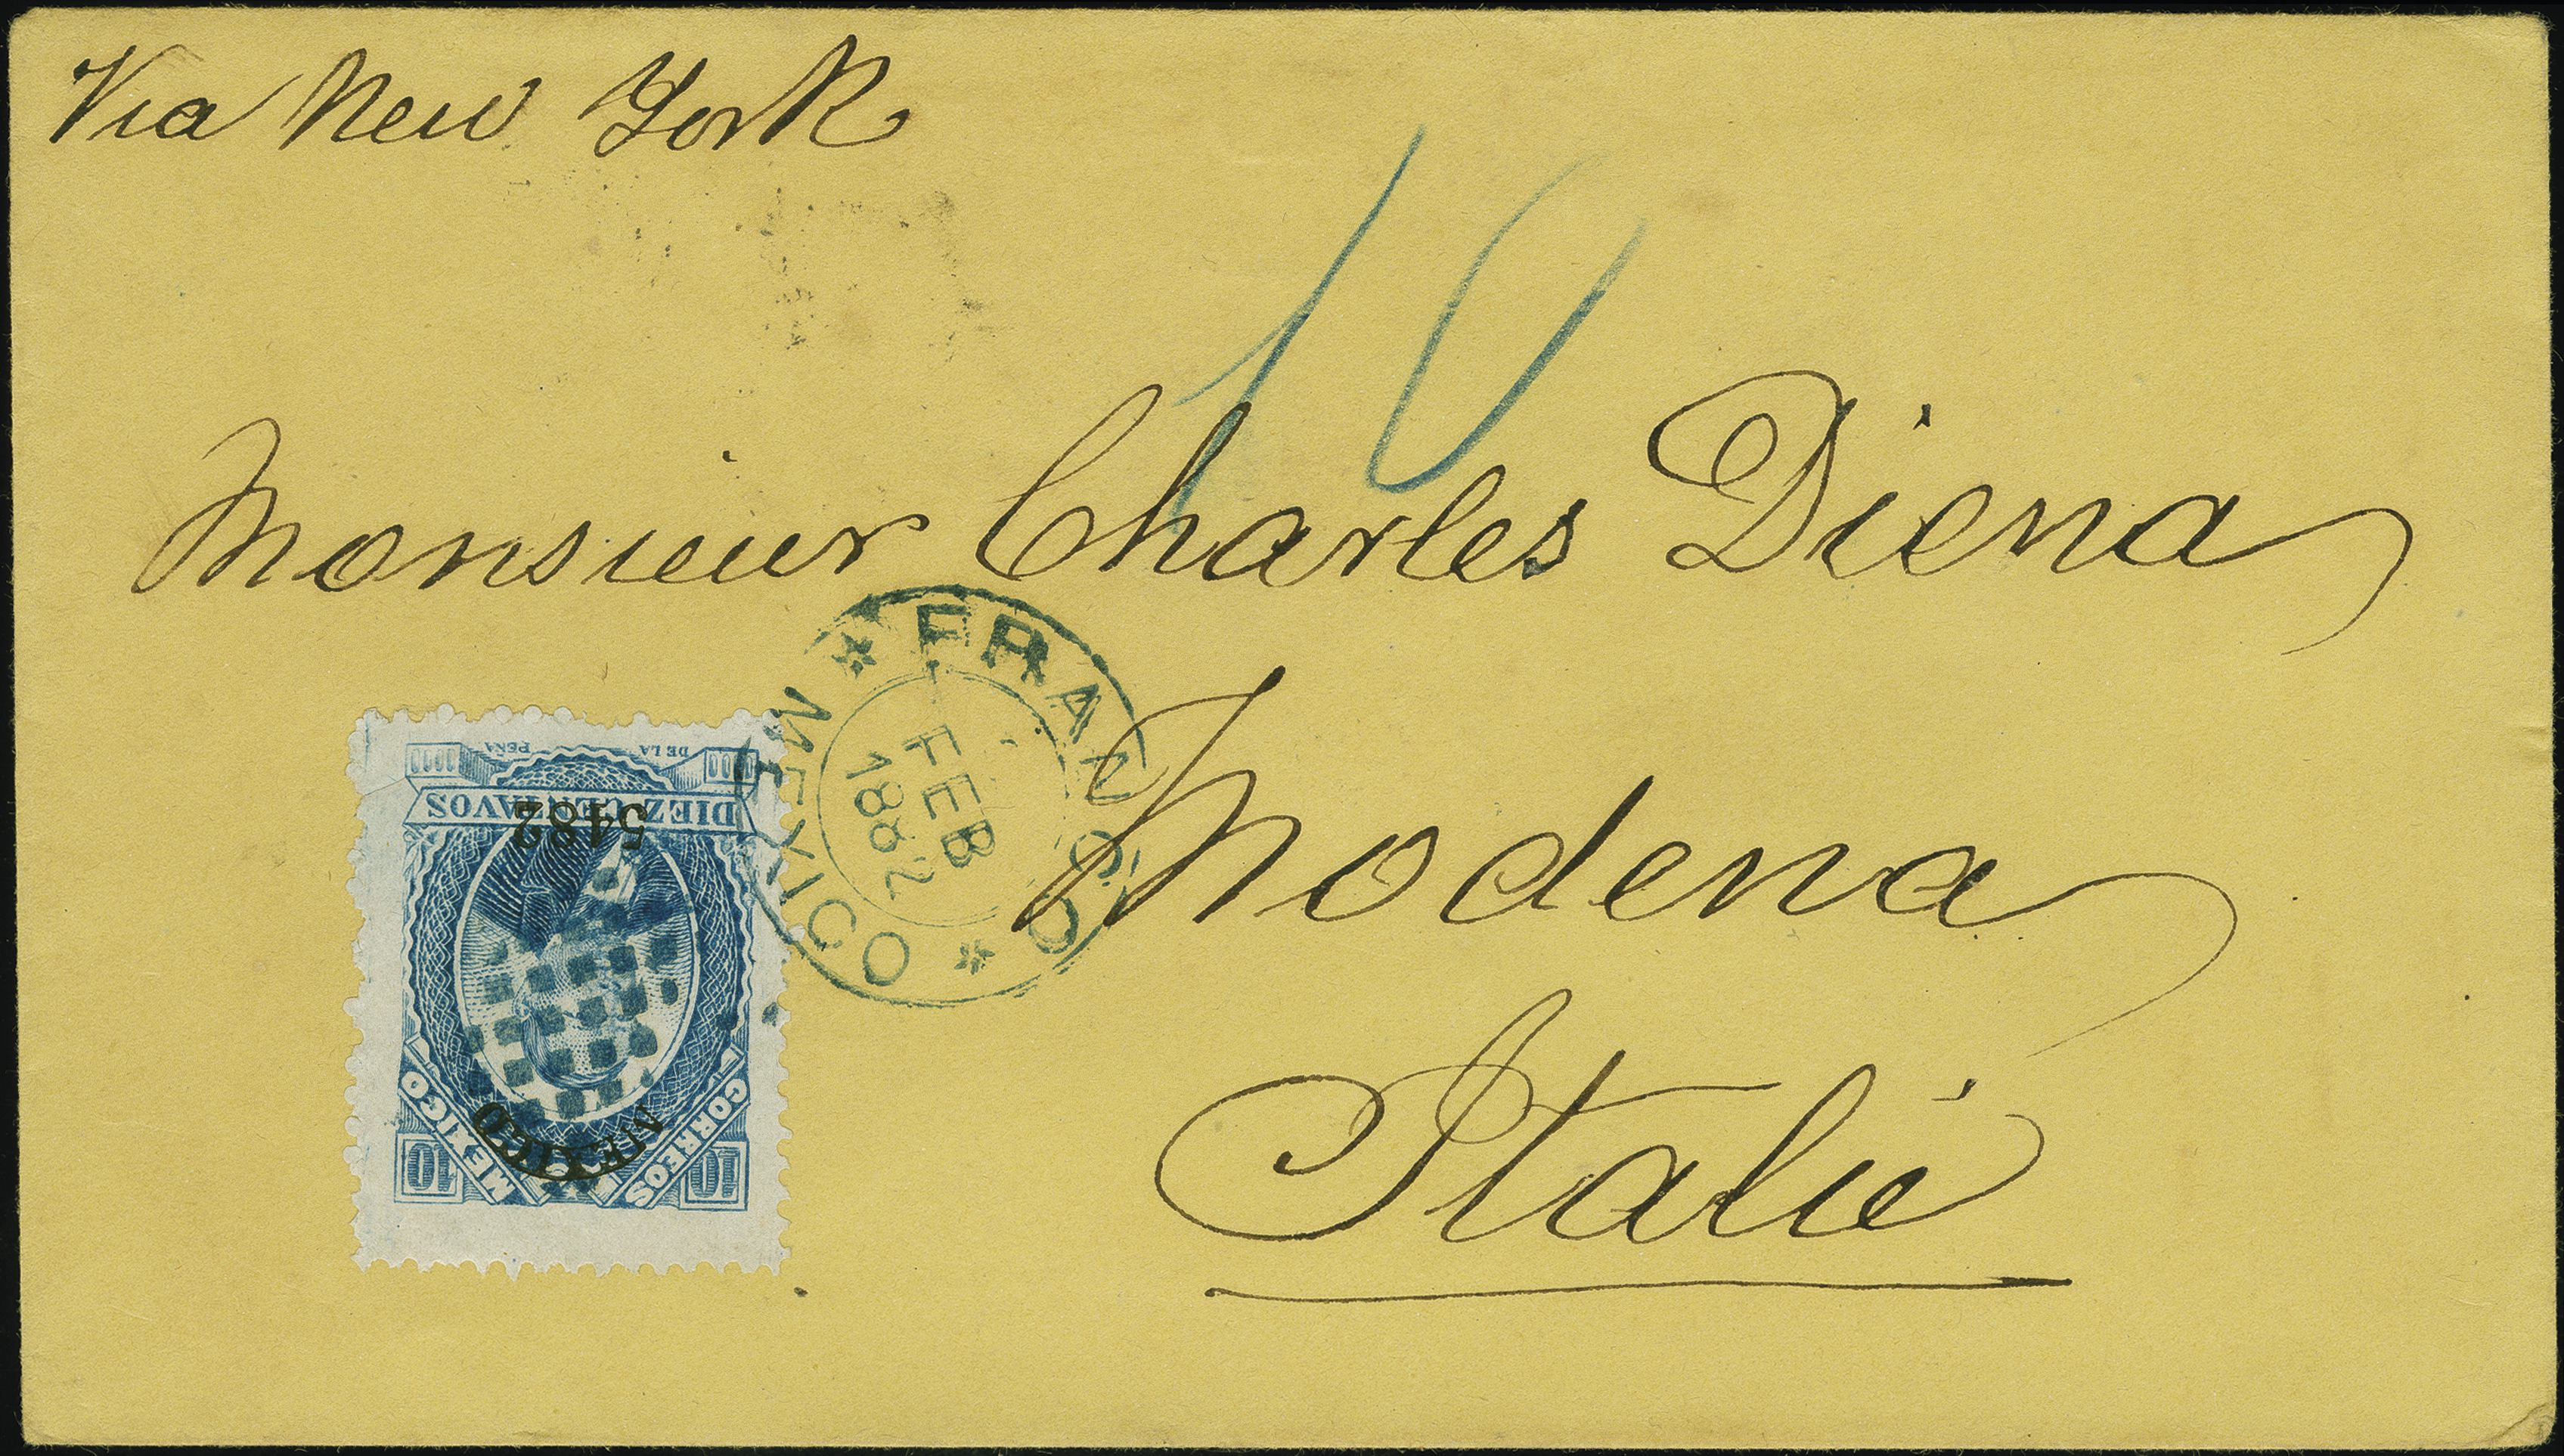 Via New York
10
Monsieur Charles Diena
Modena
Italie
* FRANCO * MEXICO
FEB
1882
10 10
CORREOS MEXICO
MEXICO
5482
DIEZ CENTAVOS
DE LA PEÑA